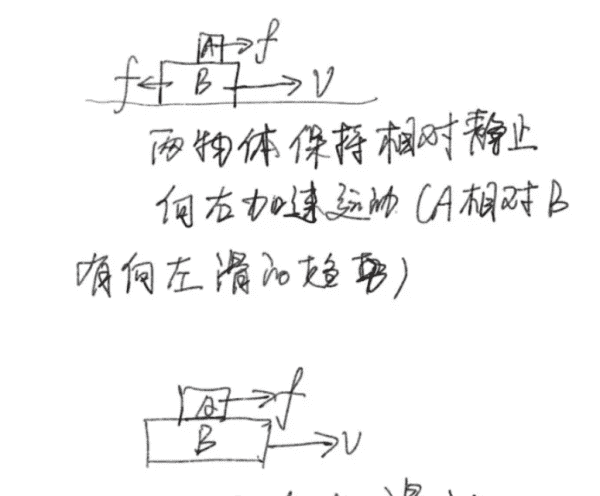 A f
f B V
两物体保持相对静止
向右加速运动（A相对B
有向左滑的趋势）
A f
B V